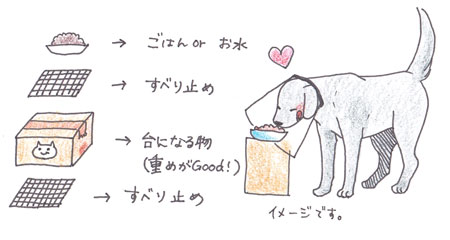 → ごはん or お水
→ すべり止め
→ 台になる物
(重めがGood!)
→ すべり止め
イメージです。